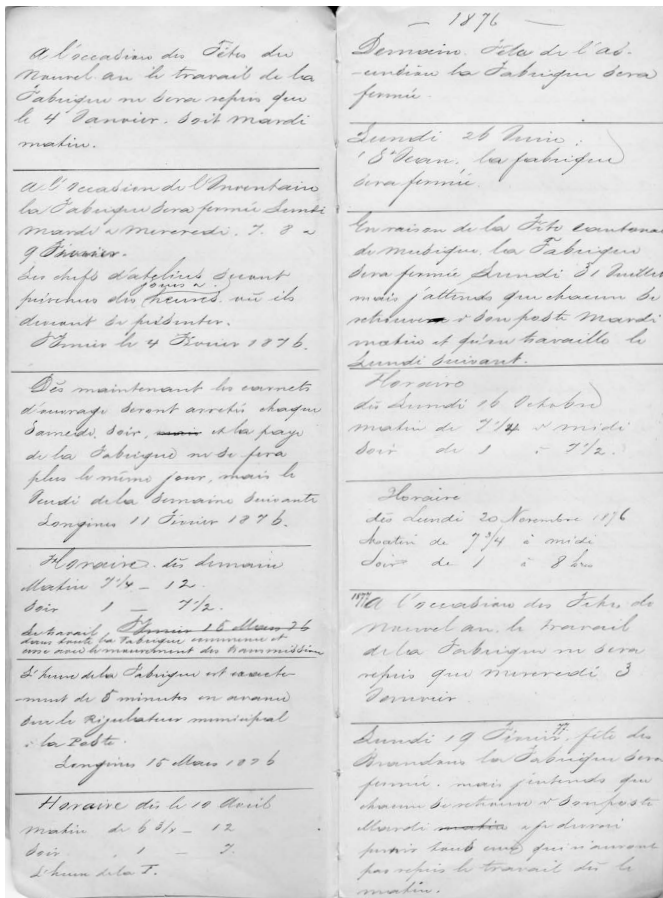 A l'occasion des Fêtes du
Nouvel an le travail de la
Fabrique ne sera repris que
le 4 Janvier. soit mardi
matin.
A l'occasion de l'Inventaire
la Fabrique sera fermée Lundi
Mardi & Mercredi. 7. 8 &
9 Février.
Les chefs d'ateliers seront
jours &
prévenus des heures où ils
devront se présenter.
St Imier le 4 Février 1876.
Dès maintenant les carnets
d'ouvrage seront arrêtés chaque
Samedi soir, et la paye
de la Fabrique ne se fera
plus le même jour, mais le
Jeudi de la Semaine Suivante
Longines 11 Février 1876.
Horaire dès demain
Matin 7 1/4 – 12.
Soir 1 – 7 1/2.
St Imier 15 Mars 76
Le travail
dans toute la Fabrique commence et
avec le mouvement des transmissions
L'heure de la Fabrique est exacte-
ment de 5 minutes en avance
sur le Régulateur municipal
à la Poste.
Longines 15 Mars 1876
Horaire dès le 10 Avril
Matin de 6 3/4 – 12
Soir 1 – 7.
L'heure de la F.
– 1876 –
Demain. Fête de l'As-
cension la Fabrique sera
fermée.
Lundi 26 Juin:
St Jean. la fabrique
sera fermée.
En raison de la Fête cantonale
de musique, la Fabrique
sera fermée Lundi 31 Juillet
mais j'attends que chacun se
retrouve à son poste Mardi
matin et qu'on travaille le
Lundi suivant.
Horaire
dès Lundi 16 Octobre
matin de 7 1/4 à midi
Soir de 1 à 7 1/2.
Horaire
dès Lundi 20 Novembre 1876
Matin de 7 3/4 à midi
Soir de 1 à 8 hres
1877 A l'occasion des Fêtes de
Nouvel an. le travail
de la Fabrique ne sera
repris que mercredi 3
Janvier.
Lundi 19 Février 77. fête des
Brandons la Fabrique sera
fermée. mais j'entends que
chacun se retrouve à son poste
Mardi matin & je devrai
punir tous ceux qui n'auront
pas repris le travail dès le
matin.